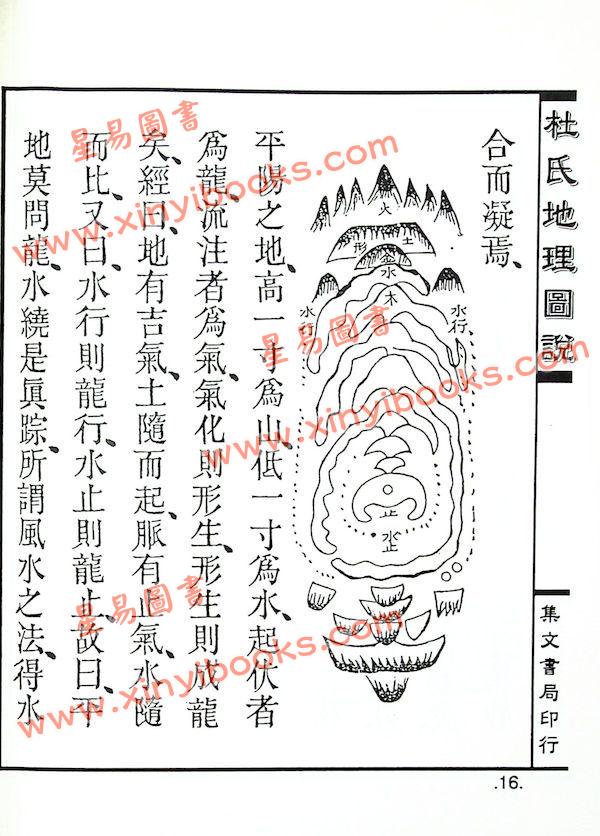 杜氏地理圖說
合而凝焉、
火
土
形
金
水
木
水行
水行
止
水
止
平陽之地、高一寸爲山、低一寸爲水、起伏者
爲龍、流注者爲氣、氣化則形生、形生則成龍
矣、經曰、地有吉氣、土隨而起、脈有止氣、水隨
而比、又曰、水行則龍行、水止則龍止、故曰、平
地莫問龍、水繞是眞踪、所謂風水之法、得水
集文書局印行
.16.
星易圖書
www.xinyibooks.com
星易圖書
www.xinyibooks.com
星易圖書
www.xinyibooks.com